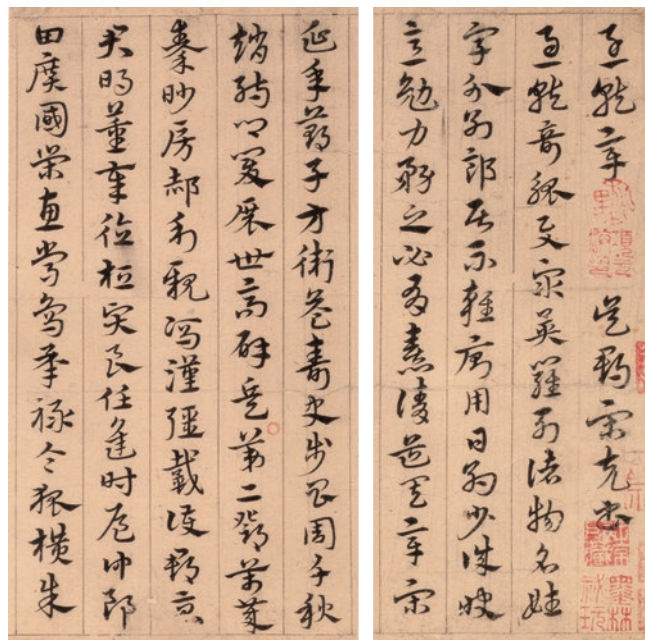 急就章 吳郡宋克書
急就奇觚與衆異羅列諸物名姓
字分別部居不雜廁用日約少誠快
意勉力務之必有憙請道其章宋
延年鄭子方衛益壽史步昌周千秋
趙孺卿爰展世高辟兵第二鄧萬歲
秦眇房郝利親馮漢彊戴護郡景
君明董奉德桓賢良任逢時侯仲郎
田廣國榮惠常烏承祿令狐橫朱